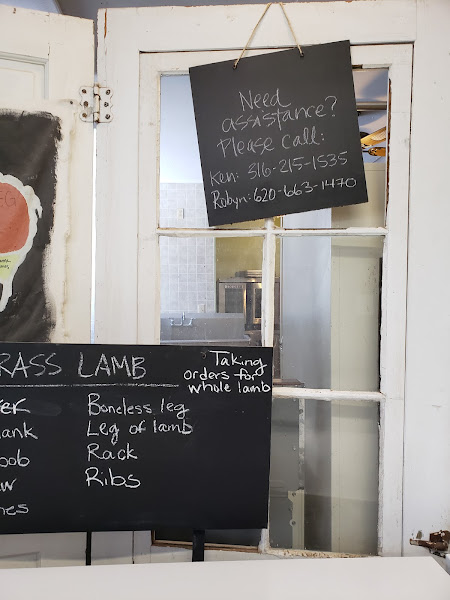 Need
assistance?
Please Call:
Ken: 316-215-1535
Robyn: 620-663-1470
RASS LAMB
Taking
orders for
whole lamb
Boneless leg
ank
Leg of lamb
bob
Rack
Ribs